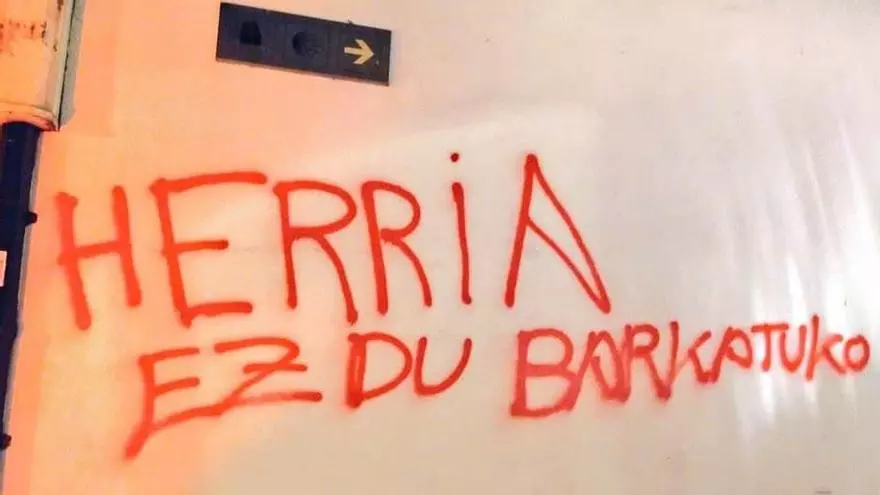 HERRiA
EZ DU BARKATUKO